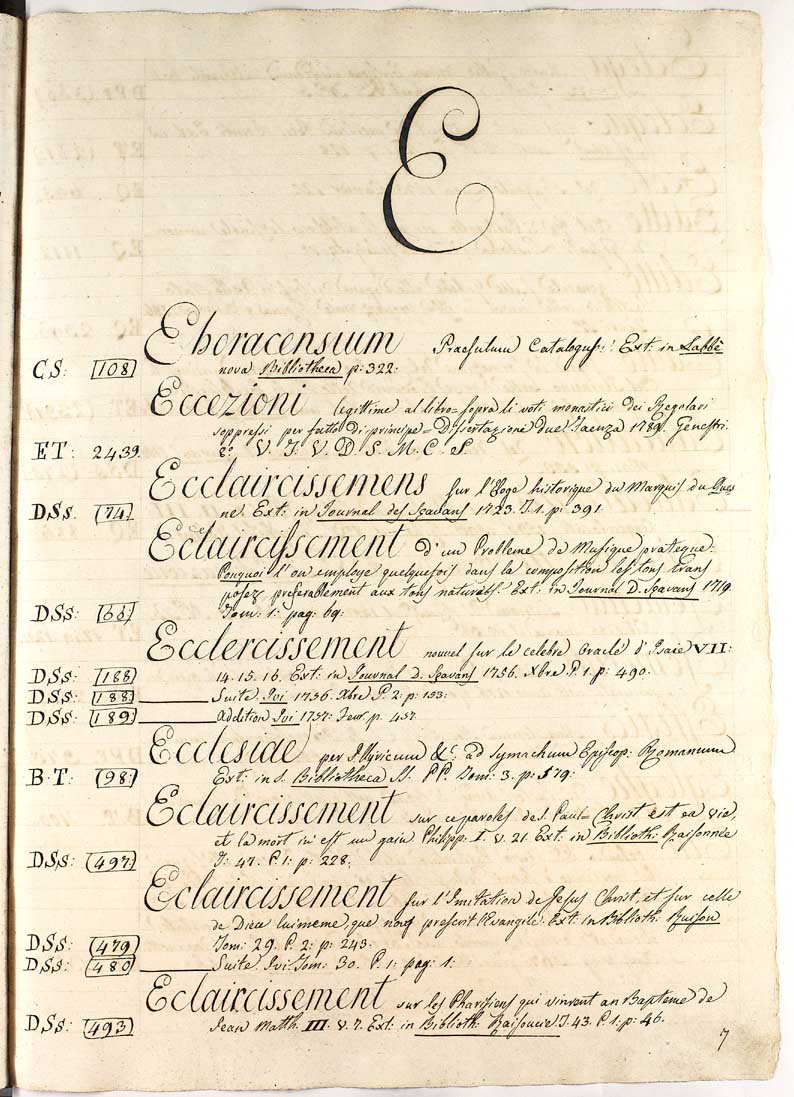 E
Eboracensium Praesulum Catalogus: Ext: in Labbè
CS: 108 nova Bibliotheca p: 322:
Eccezioni legittime al libro= sopra li voti monastici dei Regolari
soppressi per fatto di principe= Dissertazione due. Faenza 1789. Genestri
ET: 2439. 8°. V. I: V. D. S. M. C. S
Ecclaircissemens sur l'Eoge historique du Marquis du Ques
DSs. 74 ne Ext: in Journal des Sçavans 1723. T. 1. p: 391.
Eclaircissement d'un Probleme de Musique prateque:
Pouquoi l'on employe quelquefois dans la composition les tons trans
posez preferablement aux tons naturels. Ext: in Journal D. Scavans 1719.
DSs: Tom: 1: pag: 69:
Ecclercissement nouvel sur le celebre Oracle d'Isaie VII:
DSs: 188 14. 15. 16. Ext: in Journal d. Sçavans 1756. Xbre P. 1. p: 490.
DSs: 188 Suite Ivi 1756. Xbre P. 2: p: 133:
DSs: 189 Addition Ivi 1757: Feur p. 457.
Eccleside per Illyricum &c. ad Symachum Episcop: Romanum
B. T: 98 Ext: in S. Bibliotheca SS. PP. Tom: 3. p: 579.
Eclaircissement sur ce paroles de S. Paul= Christ est ea vie,
et la mort m'est un gain Philipp. I. v. 21. Ext: in Biblioth: Raisonnée
DSs: 497 T: 47. P. 1: p: 228.
Eclaircissement sur l'Imitation de Jesus Christ, et sur celle
de Dieu luimeme, que nous prescrit l'Evangile: Ext: in Biblioth. Raison
DSs: 479 Tom: 29. P. 2: p: 243:
DSs: 480 Suite Ivi Tom: 30. P. 1: pag: 1:
Eclaircissement sur les Pharisiens qui vinrent au Bapteme de
DSs: 493 Jean Matth. III. v. 7. Ext: in Biblioth: Raisonnée T. 43. P. 1: p: 46.
7